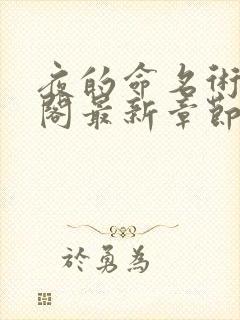 夜的命名術
閣最新章節
於勇為